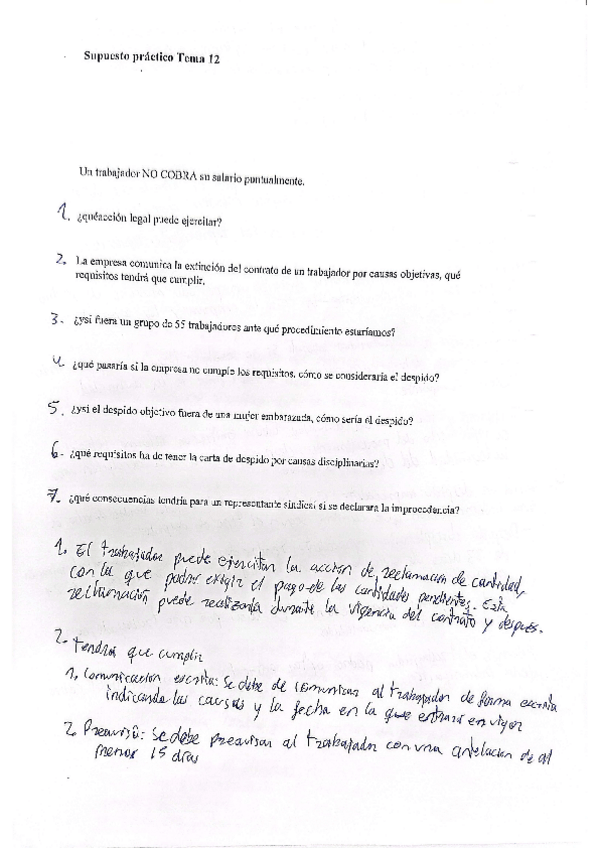 Supuesto práctico Tema 12
Un trabajador NO COBRA su salario puntualmente.
1. ¿quéacción legal puede ejercitar?
2. La empresa comunica la extinción del contrato de un trabajador por causas objetivas, qué
requisitos tendrá que cumplir.
3. ¿ysi fuera un grupo de 55 trabajadores ante qué procedimiento estaríamos?
4. ¿qué pasaría si la empresa no cumple los requisitos, cómo se consideraría el despido?
5. ¿ysi el despido objetivo fuera de una mujer embarazada, cómo sería el despido?
6. ¿qué requisitos ha de tener la carta de despido por causas disciplinarias?
7. ¿qué consecuencias tendría para un representante sindical si se declarara la improcedencia?
1. El trabajador puede ejercitar la acción de reclamación de cantidad,
con la que podrá exigir el pago de las cantidades pendientes. Esta
reclamación puede realizarla durante la vigencia del contrato y después.
2. Tendrá que cumplir
1. Comunicación escrita: se debe de comunicar al trabajador de forma escrita
indicando las causas y la fecha en la que entrará en vigor
2. Preaviso: se debe preavisar al trabajador con una antelación de al
menor 15 días